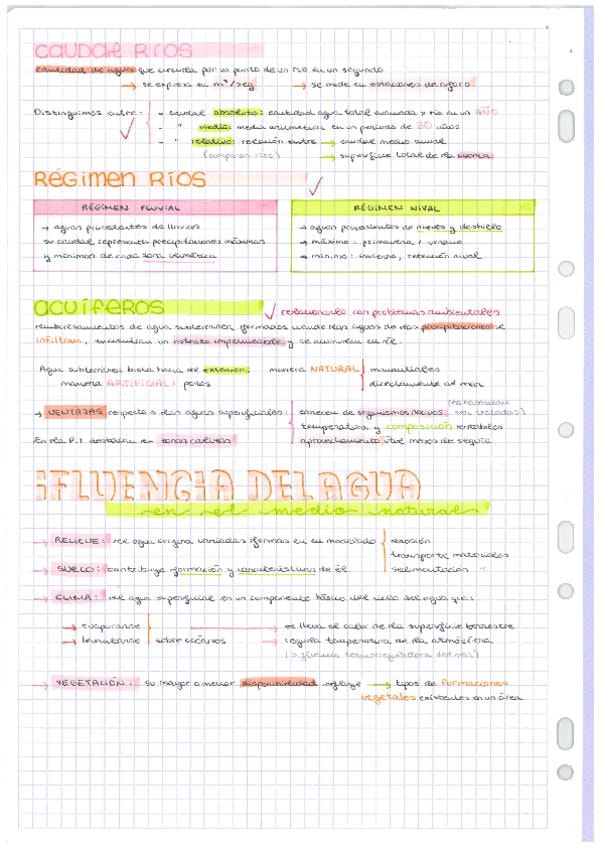 CAUDAL RIOS
cantidad de agua que circula por un punto de un río en un segundo
→ se expresa en m³/seg → se mide en estaciones de aforo
Distinguimos entre: - caudal absoluto: cantidad agua total evacuada x río en un AÑO
- " medio: media aritmética en un periodo de 30 años
- " relativo: relación entre → caudal medio anual
(comparar ríos) → superficie total de la cuenca
RÉGIMEN RÍOS
RÉGIMEN PLUVIAL
→ aguas procedentes de lluvias
su caudal representa precipitaciones máximas
y mínimas de cada zona climática
RÉGIMEN NIVAL
→ aguas procedentes de nieves y deshielo
→ máximo: primavera / verano
→ mínimo: invierno, retención nival
ACUÍFEROS
relacionarlo con problemas ambientales
embolsamientos de agua subterránea formados cuando las aguas de las precipitaciones se
infiltran, encuentran un estrato impermeable y se acumulan en él.
Agua subterránea brota hacia el exterior: manera NATURAL manantiales
manera ARTIFICIAL: pozos directamente al mar
→ VENTAJAS respecto a las aguas superficiales: carecen de organismos nocivos (no necesitan ser tratadas)
temperatura y composición estables
En la P.I destacan en zonas calizas aprovechamiento útil meses de sequía
iFLUENCIA DEL AGUA
en el medio natural
→ RELIEVE: el agua origina variadas formas en su modelado erosión
transporte materiales
→ SUELO: contribuye formación y características de él. sedimentación "
→ CLIMA: el agua superficial es un componente básico del ciclo del agua que:
→ evaporarse → se lleva el calor de la superficie terrestre
→ sobre océanos → regula temperatura de la atmósfera
(influencia termorreguladora del mar)
→ VEGETACIÓN: su mayor o menor disponibilidad influye → tipos de formaciones
vegetales existentes en un área